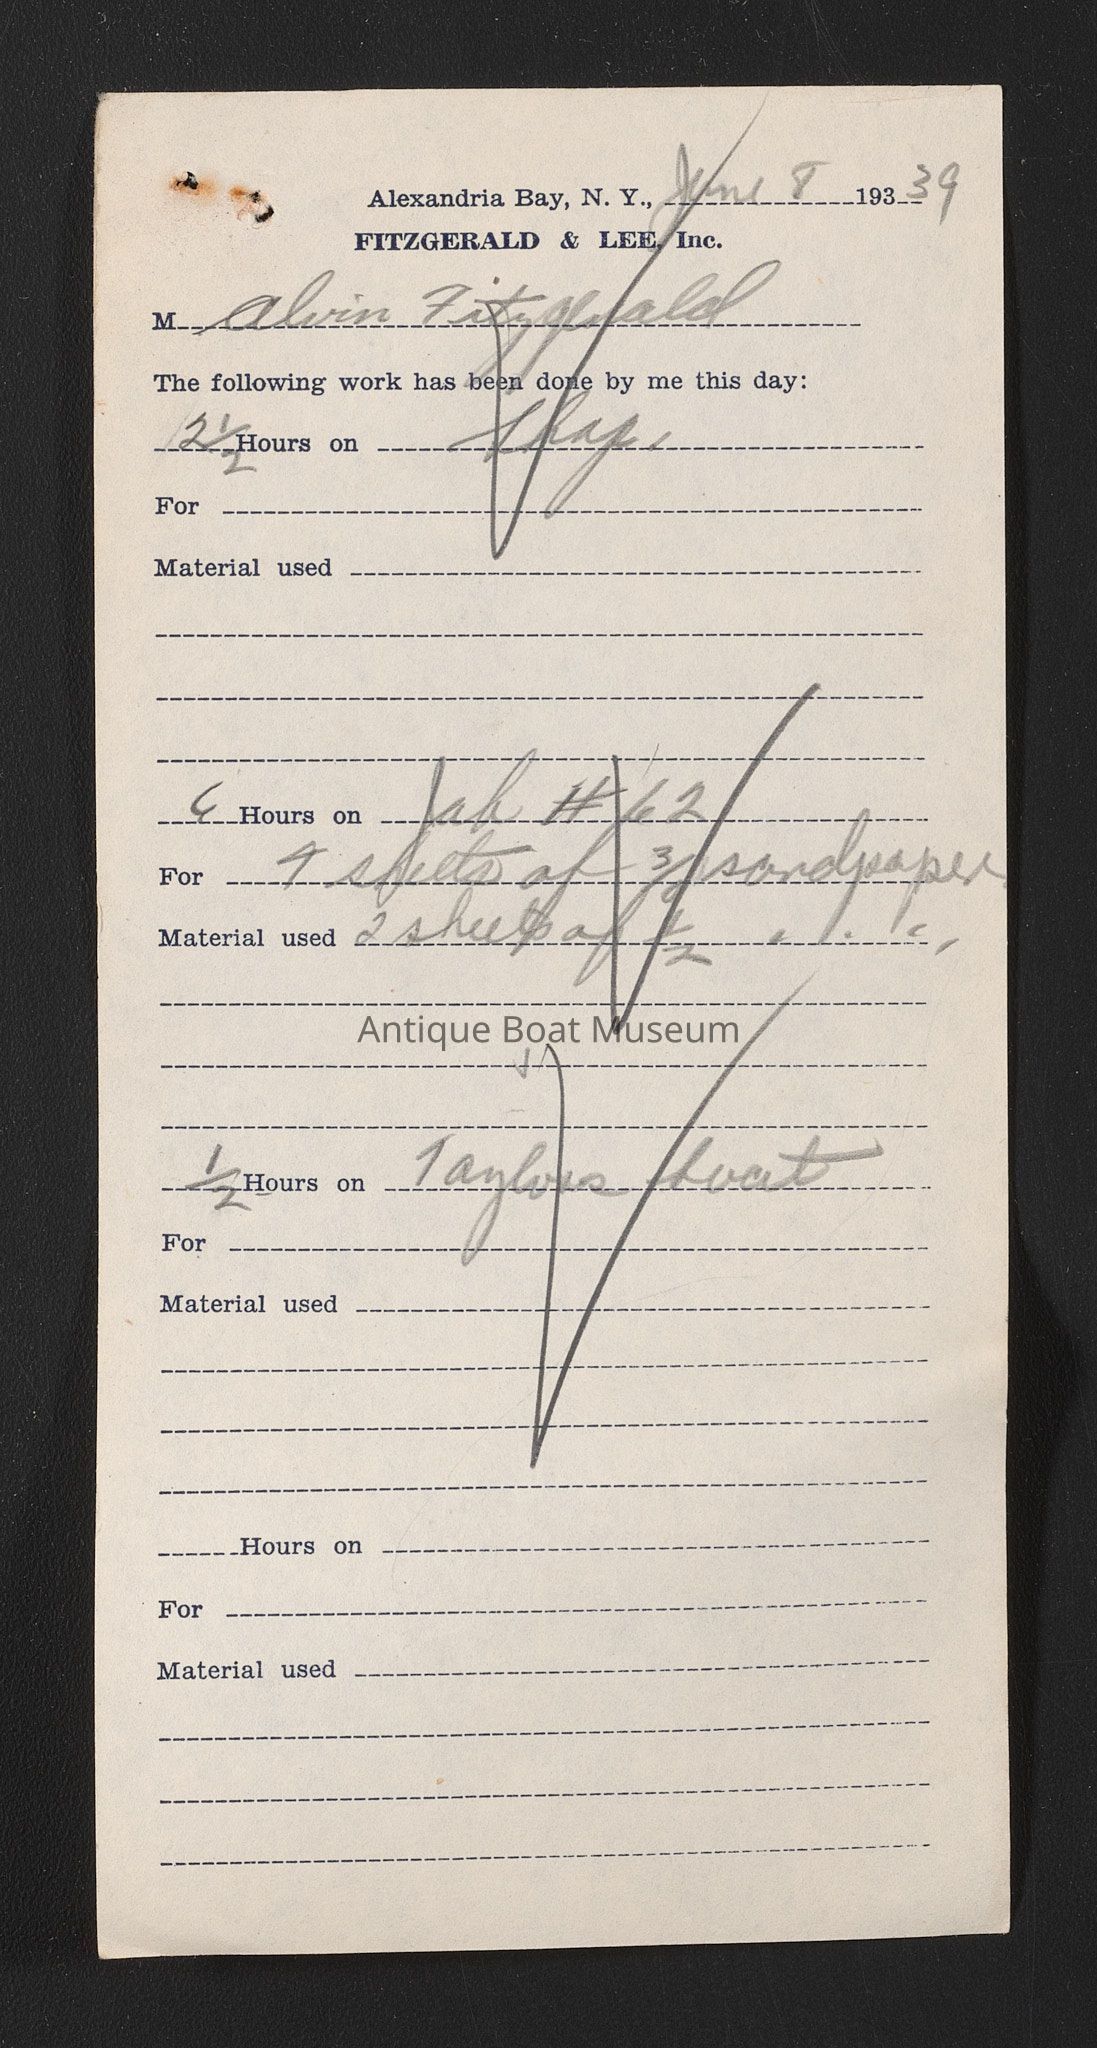 Alexandria Bay, N. Y., June 8 193 39
FITZGERALD & LEE, Inc.
M Alvin Fitzgerald
The following work has been done by me this day:
2 1/2 Hours on Shop.
For
Material used
6 Hours on Job # 62
For 4 sheets of 3/0 sandpaper
Material used 2 sheets of 1/2 " " "
Antique Boat Museum
1/2 Hours on Taylors boat
For
Material used
Hours on
For
Material used